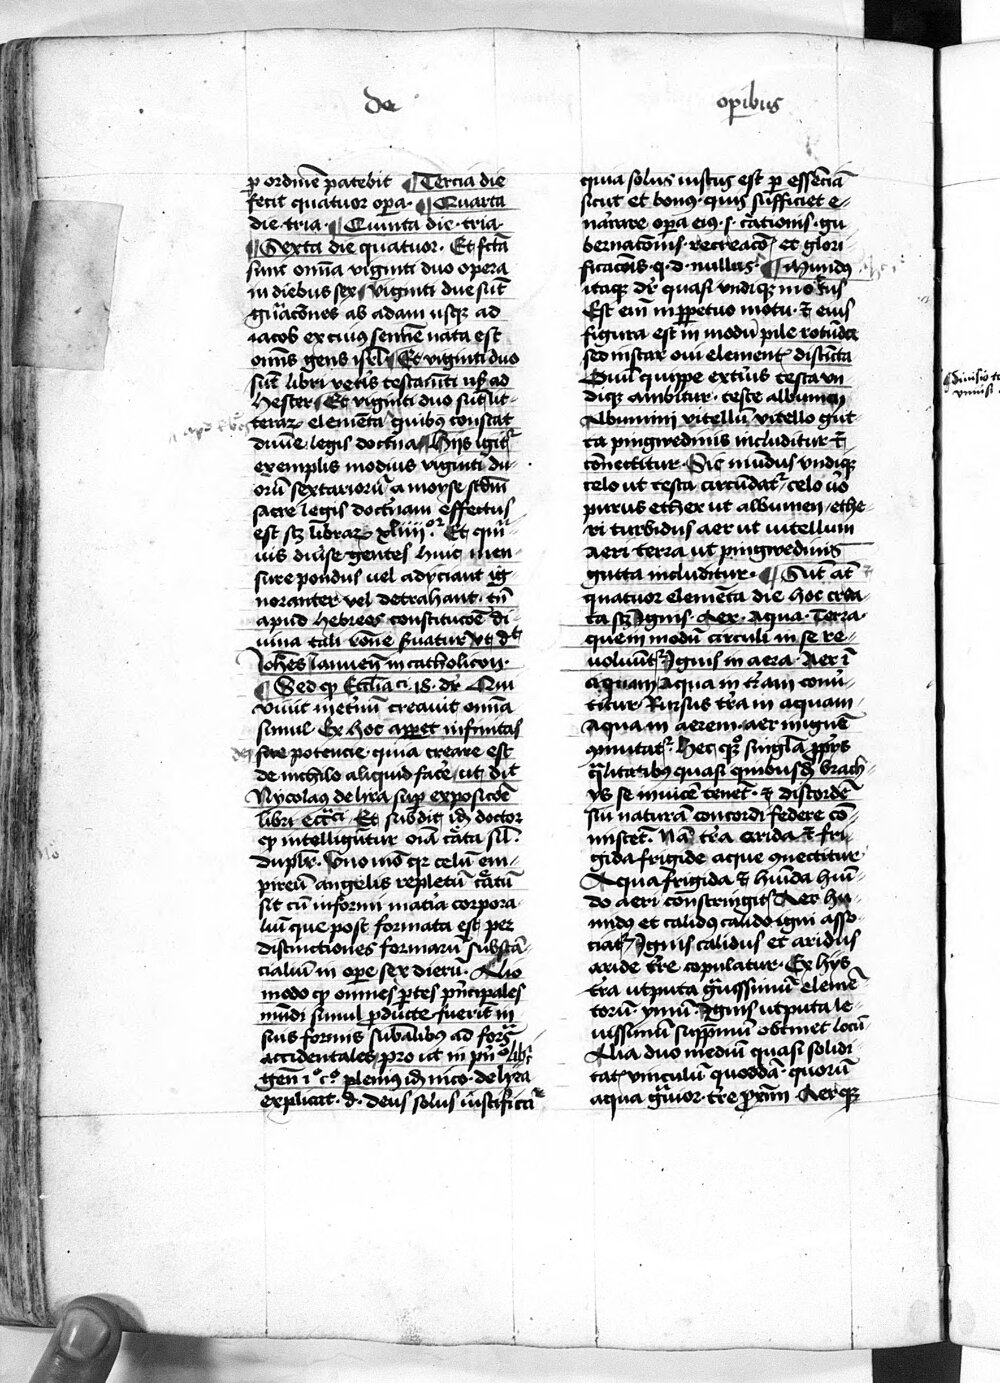 de opibus
p ordinē patebit ¶ Tercia die
fecit quatuor opa. ¶ Quarta
die tria ¶ Quinta die tria
¶ Sexta die quatuor. Et sctā
sunt om̄ia viginti duo opera
in diebus sex ¶ Viginti due sūt
gn̄acōnes ab adam usqꝫ ad
iacob ex cuius semine nata est
om̄is gens isrl ¶ Et viginti duo
sūt libri vet̄is testamēti usqꝫ ad
hester ¶ Et viginti duo sūt litt-
terarꝫ elemēta quibꝯ constat
diuīe legis doctrīa ¶ Hijs igit᷑
exemplis modius viginti du-
orū sextariorū a moyse scdm̄
sacre legis doctrinam effectus
est scꝫ librarꝫ xliiiior. Et qm̄-
uis diūse gentes huic men-
sure pondus uel adyciant ig-
noranter vel detrahant. tn̄
apud hebreos constitucōe di-
uina tali rōne ẜuatur ut dt̄
Joh̄es Januen̄ in catholicon.
¶ Sed qꝫ Ecc̄liastici 18. dr̄ Qui
viuit inet̄nū creauit om̄ia
simul Ex hoc apparet infinitas
sue potencie. quia creare est
de nichilo aliquid fac̄e ut dīt
Nycolaus de lira sup exposicōē
libri ecc̄ci. Et subdit id doctor
qꝫ intelligūtur oīa cāta sil̄
duplr̄. Vno mō qꝫ celū em-
pireū angelis repletū cātū
sit cū informi mat̄ia corpora-
liū que post formata est per
distinctiones formarū substā-
cialiū in ope sex dierū. Alio
modo qꝫ omnes ptes pn̄cipales
mūdi simul pducte fuerīt in
suis formis subālibus ad formas
accidentales pro ut in pn̄o libri
gen̄ io co plenius id nico. de lira
explicat. d. deus solus iustific̄t
quia solus iustus est p essēciā
sicut et bonus. quis sufficiet e-
narrare opa eiꝯ. s. cātionis. gu-
bernacōnis. recreacō. et glori-
ficacōis. q. d. nullus. ¶ Mundus
itaqꝫ dr̄ quasi vndiqꝫ motus
Est eni in ppetuo motu. et eius
figura est in modū pile rotūda
sed instar oui element. distīcta
Ouū quippe exteriꝯ testa vn-
diqꝫ ambitur. teste albumen
Albumini vitellū vitello gut-
ta pingwedinis includitur et
cōnectitur Sic mūdus vndiqꝫ
celo ut testa circūdat᷑ celo ūo
purus ether ut albumen ethe-
ri turbidus aer ut uitellum
Aeri terra ut pingwedinis
gutta includitur. ¶ Sūt āt
quatuor elemēta die hoc crea-
ta scꝫ Ignis. Aer. Aqua. Terra
quem modū circuli in se re-
uoluūt᷑ Ignis in aera. Aer ī
aquam Aqua in t̄ram conū-
titur. Rursus t̄ra in aquam
Aqua in aerem aer in ignē
ꝯmutat᷑. hec q̄ singla ꝓprijs
q̄litatibus quasi quibusdā brach-
ijs se inuicē tenēt. et discordē
suā naturam concordi federe cō-
miscēt. Nā t̄ra arida et fri-
gida frigide aque ꝯnectitur
Aqua frigida et humīda humī-
do aeri constringit᷑ Aer hu-
midꝯ et calidꝯ calido igni asso-
ciat᷑ Ignis calidus et aridus
aride t̄re copulatur. Ex hijs
t̄ra utputa gr̄uissimū elemē-
torū. ymū. Ignis utputa le-
uissimū suppmū obtinet locū
Alia duo mediū quasi solidi-
tat᷑ vinculū quoddā. quorū
aqua gr̄uior t̄re ꝓxim Aer qꝫ